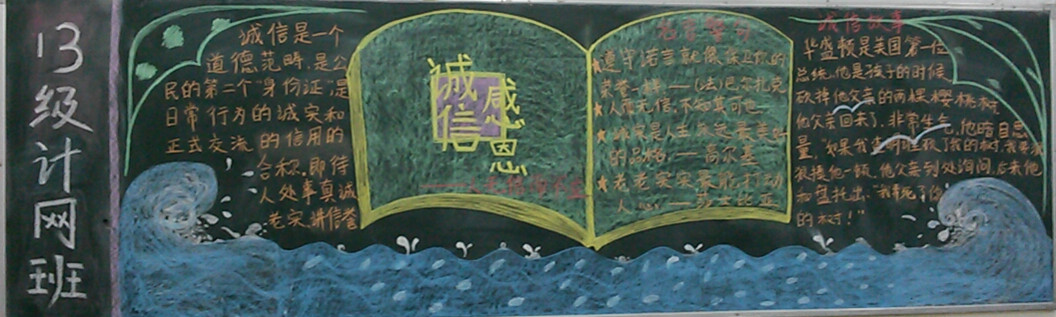 13级计网班
诚信是一个
道德范畴,是公
民的第二个"身份证,是
日常行为的诚实和
正式交流的信用的
合称.即待
人处事真诚
老实.讲信誉
诚信
感恩
遵守诺言就像保卫你的
荣誉一样——(法)巴尔扎克
★人而无信,不知其可也
★诚实是人生永远最美好
的品格.——高尔基
★老老实实最能打动
人心——莎士比亚
诚信故事
华盛顿是美国第一位
总统.他是孩子的时候
砍掉他父亲的两棵樱桃树.
他父亲回来了.非常生气.他暗自思
量,"如果我查明谁砍了我的树,我要狠
狠揍他一顿.他父亲到处询问.后来他
和盘托出."我砍死了你
的树!"